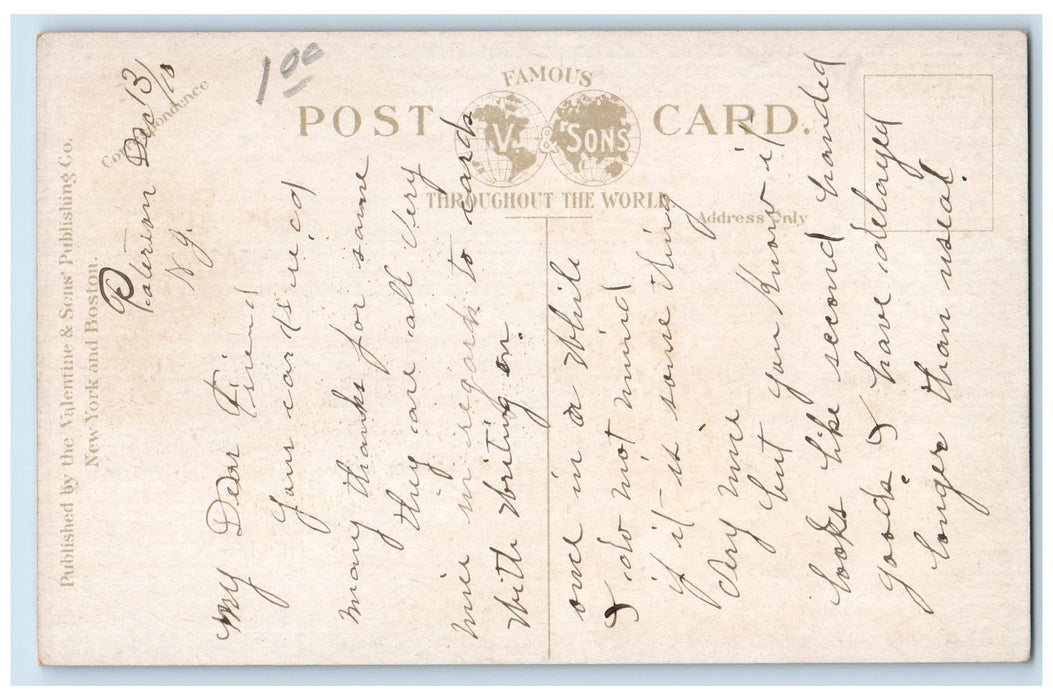 1 00
FAMOUS
POST CARD.
V. & SONS
THROUGHOUT THE WORLD.
Correspondence
Address Only
Published by the Valentine & Sons' Publishing Co.
New York and Boston.
Paterson Dec 13/10
N J.
My Dear Friend
Your cards rec d
many thanks for same
they are all very
nice in regards to cards
with writing on.
one in a while
& do not mind
if it is some thing
very nice
but you know it
looks like second handed
goods. & have delayed
longer than useal.